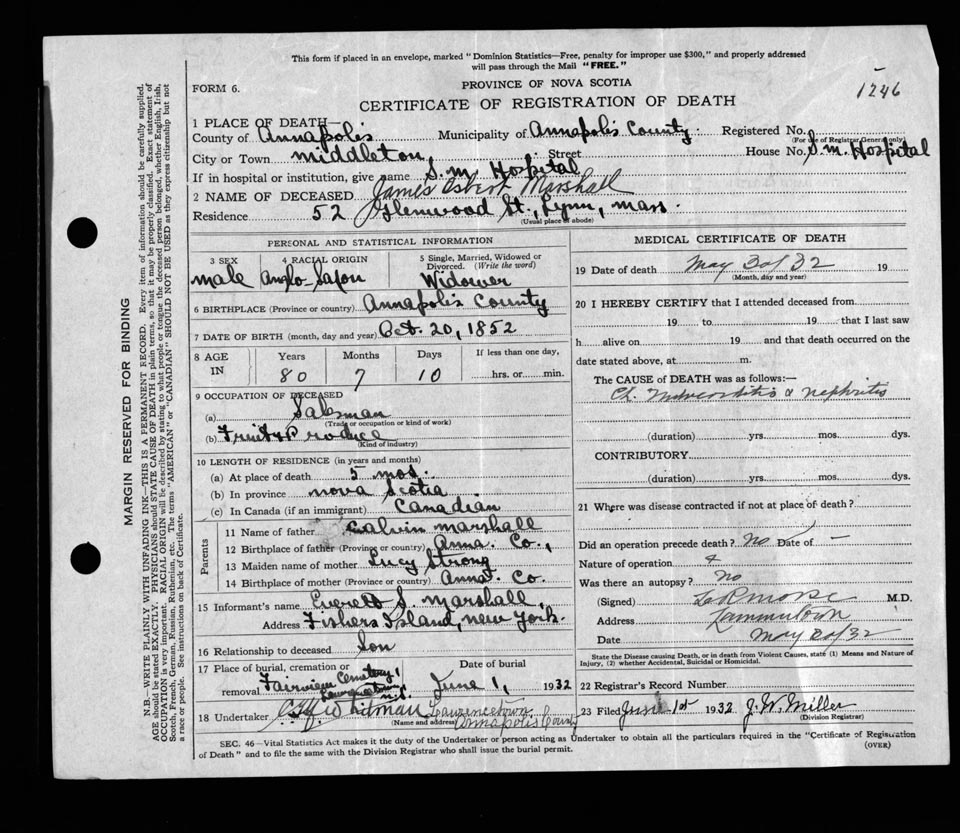 This form if placed in an envelope, marked "Dominion Statistics—Free, penalty for improper use $300," and properly addressed
will pass through the Mail "FREE."
FORM 6.
PROVINCE OF NOVA SCOTIA
1246
CERTIFICATE OF REGISTRATION OF DEATH
1 PLACE OF DEATH—
County of Annapolis Municipality of Annapolis County Registered No.
(For use of Registrar General only)
City or Town Middleton, Street House No. S.M. Hospital
If in hospital or institution, give name S.M. Hospital
2 NAME OF DECEASED James Osbert Marshall
Residence 52 Glenwood St., Lynn, Mass.
(Usual place of abode)
PERSONAL AND STATISTICAL INFORMATION
3 SEX 4 RACIAL ORIGIN 5 Single, Married, Widowed or
Divorced. (Write the word)
Male Anglo-Saxon Widower
6 BIRTHPLACE (Province or country) Annapolis County
7 DATE OF BIRTH (month, day and year) Oct. 20, 1852
8 AGE IN Years Months Days If less than one day,
80 7 10 hrs. or min.
9 OCCUPATION OF DECEASED
(a) Salesman
(Trade or occupation or kind of work)
(b) Fruit & Produce
(Kind of industry)
10 LENGTH OF RESIDENCE (in years and months)
(a) At place of death 5 mos.
(b) In province Nova Scotia
(c) In Canada (if an immigrant) Canadian
Parents
11 Name of father Calvin Marshall
12 Birthplace of father (Province or country) Anna. Co.,
13 Maiden name of mother Lucy Strong
14 Birthplace of mother (Province or country) Anna. Co.
15 Informant's name Everett S. Marshall,
Address Fishers Island, New York.
16 Relationship to deceased Son
17 Place of burial, cremation or removal Fairview Cemetery, Lawrencetown N.S. Date of burial June 1, 1932
18 Undertaker Whitman Lawrencetown
(Name and address) Annapolis County
MEDICAL CERTIFICATE OF DEATH
19 Date of death May 30/32 19
(Month, day and year)
20 I HEREBY CERTIFY that I attended deceased from
19 to 19 that I last saw
h alive on 19 and that death occurred on the
date stated above, at m.
The CAUSE of DEATH was as follows:—
Ch. Myocarditis & Nephritis
(duration) yrs. mos. dys.
CONTRIBUTORY
(duration) yrs. mos. dys.
21 Where was disease contracted if not at place of death?
Did an operation precede death? No Date of –
Nature of operation
Was there an autopsy? No
(Signed) L R Morse M.D.
Address Lawrencetown
Date May 30/32
State the Disease causing Death, or in death from Violent Causes, state (1) Means and Nature of
Injury, (2) whether Accidental, Suicidal or Homicidal.
22 Registrar's Record Number
23 Filed June 1st 1932 J. W. Miller
(Division Registrar)
SEC. 46—Vital Statistics Act makes it the duty of the Undertaker or person acting as Undertaker to obtain all the particulars required in the "Certificate of Registration
of Death" and to file the same with the Division Registrar who shall issue the burial permit. (OVER)
MARGIN RESERVED FOR BINDING
N.B.—WRITE PLAINLY WITH UNFADING INK—THIS IS A PERMANENT RECORD. Every item of information should be carefully supplied.
AGE should be stated EXACTLY. PHYSICIANS should STATE CAUSE OF DEATH in plain terms, so that it may be properly classified. Exact statement of
OCCUPATION is very important. RACIAL ORIGIN will be described by stating to what people or tongue the deceased person belonged, whether English, Irish,
Scotch, French, German, Russian, Ruthenian, etc. The terms "AMERICAN" or "CANADIAN" SHOULD NOT BE USED as they express citizenship but not
a race or people. See instructions on back of Certificate.